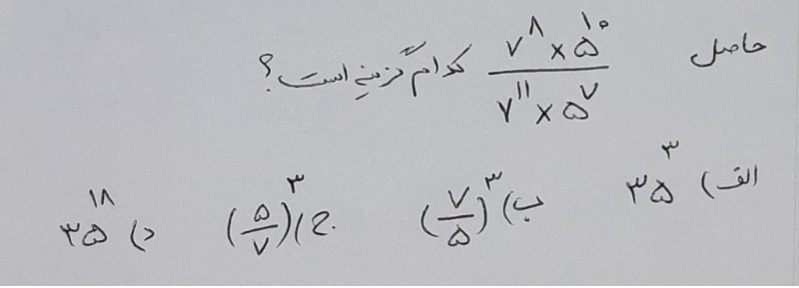 حاصل (۷^۸ × ۵^۱۰)/(۷^۱۱ × ۵^۷) کدام گزینه است؟
الف) ۳۵^۳ ب) (۷/۵)^۳ ج) (۵/۷)^۳ د) ۳۵^۱۸